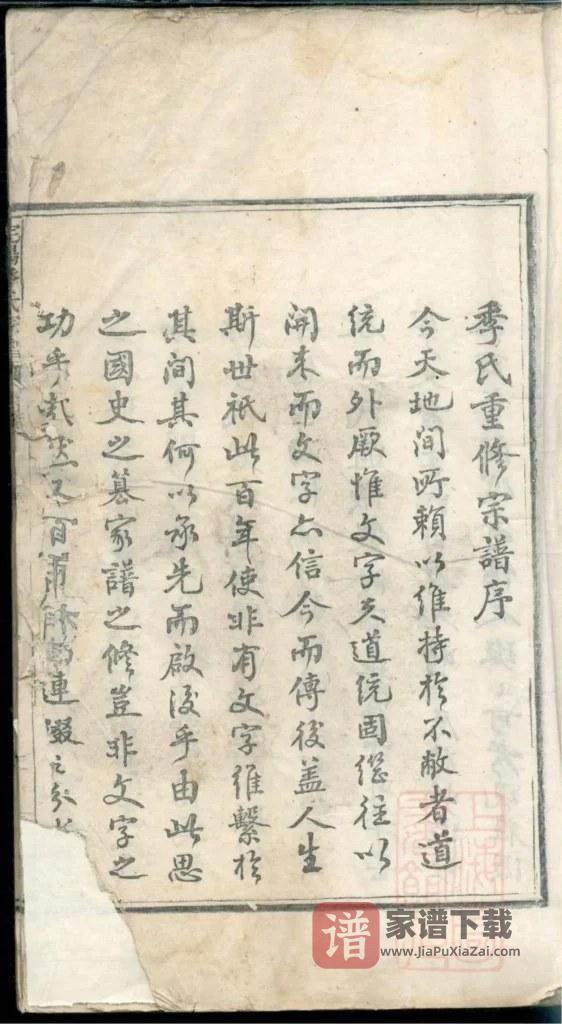 季氏重修宗譜序
今天地間所賴以維持於不敝者道
統而外厥惟文字夫道統固繼往以
開来而文字亦信今而傳後盖人生
斯世祇此百年使非有文字維繫於
其間其何以承先而啟後乎由此思
之國史之纂家譜之修豈非文字之
功乎
連綴之
谱 家谱下载
www.JiaPuXiaZai.com